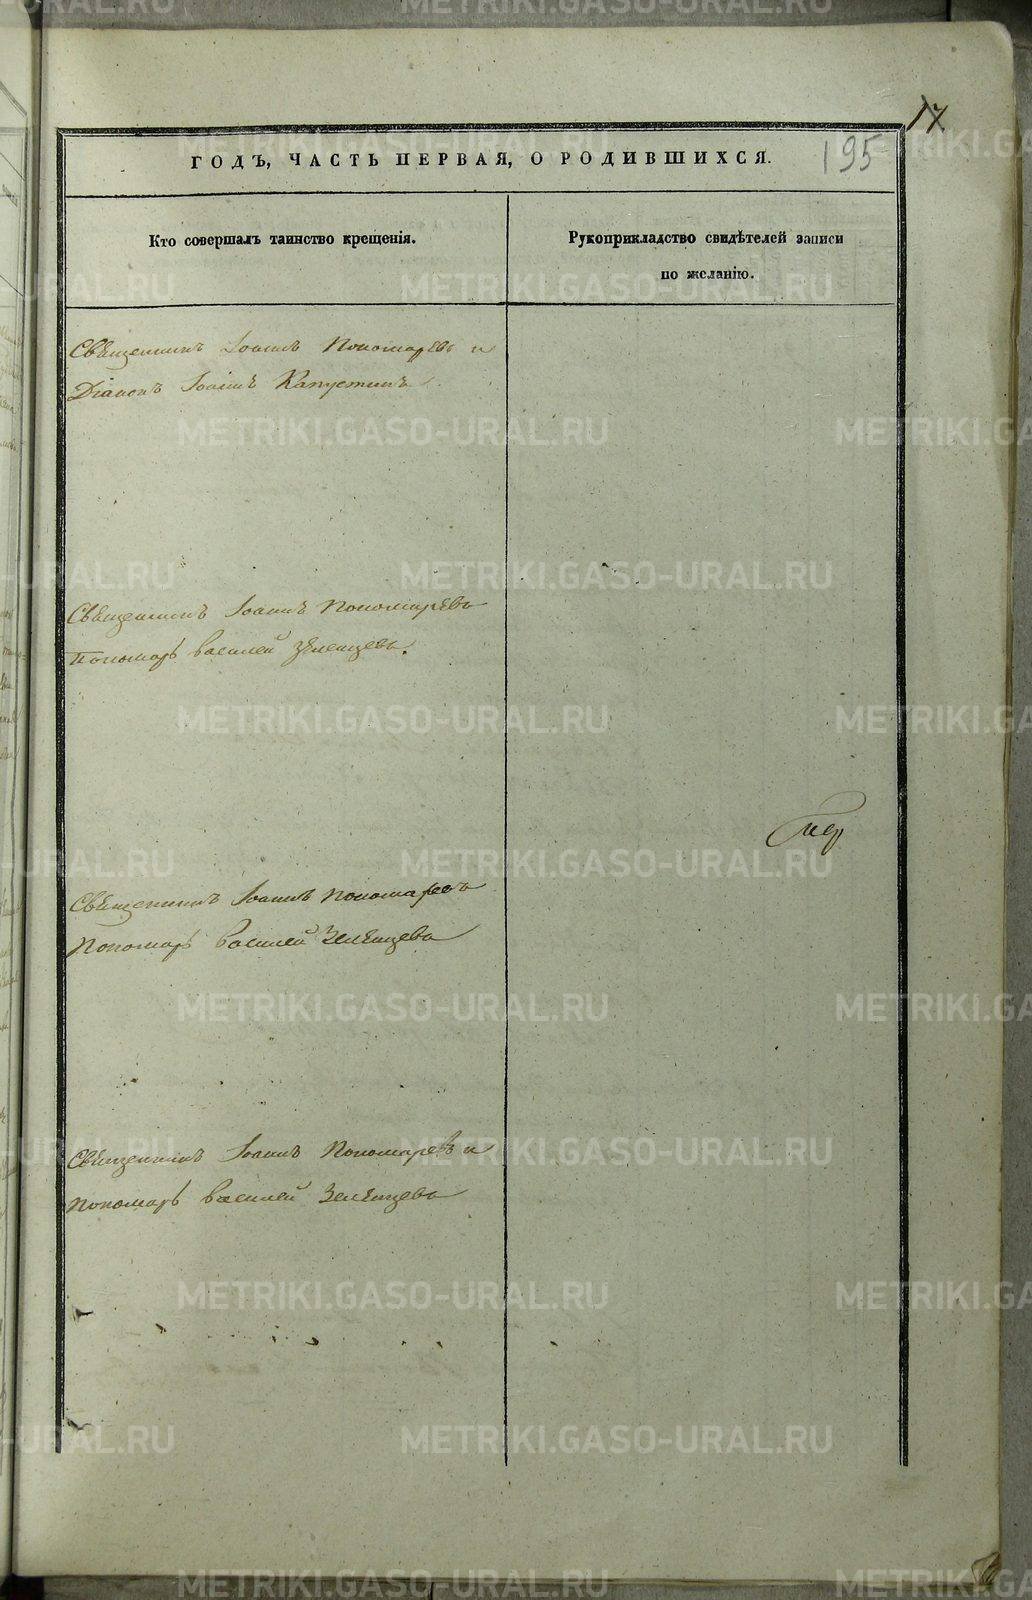 17
195
ГОДЪ, ЧАСТЬ ПЕРВАЯ, О РОДИВШИХСЯ.
Кто совершалъ таинство крещенія.
Рукоприкладство свидѣтелей записи
по желанію.
Священникъ Іоаннъ Пономаревъ и
Діаконъ Іоаннъ Капустинъ
Священникъ Іоаннъ Пономаревъ
Пономарь Василей Зеленцевъ.
Священникъ Іоаннъ Пономаревъ
Пономарь Василей Зеленцевъ
Священникъ Іоаннъ Пономаревъ и
Пономарь Василей Зеленцевъ
METRIKI.GASO-URAL.RU